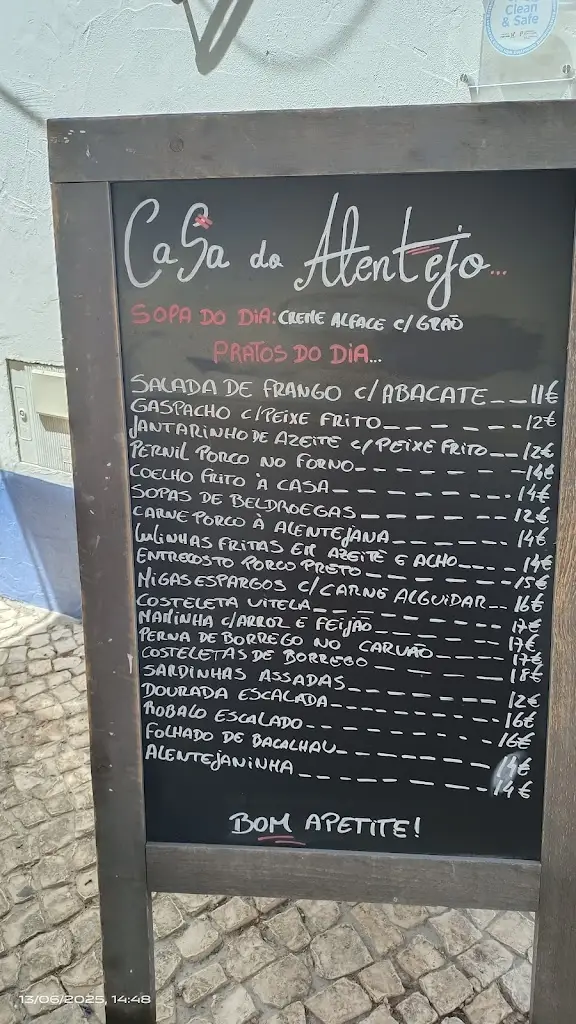 Clean
& Safe
CaSa do Alentejo...
SOPA DO DIA: CREME ALFACE C/ GRÃO
PRATOS DO DIA...
SALADA DE FRANGO C/ ABACATE__11€
GASPACHO C/PEIXE FRITO_____12€
JANTARINHO DE AZEITE C/ PEIXE FRITO__12€
PERNIL PORCO NO FORNO_____14€
COELHO FRITO À CASA_____14€
SOPAS DE BELDROEGAS_____12€
CARNE PORCO À ALENTEJANA_____14€
LULINHAS FRITAS EM AZEITE E ALHO____14€
ENTRECOSTO PORCO PRETO_____15€
MIGAS ESPARGOS C/ CARNE ALGUIDAR__16€
COSTELETA VITELA_____17€
MAMINHA C/ARROZ E FEIJÃO_____17€
PERNA DE BORREGO NO CARVÃO____17€
COSTELETAS DE BORREGO_____18€
SARDINHAS ASSADAS_____12€
DOURADA ESCALADA_____16€
ROBALO ESCALADO_____16€
FOLHADO DE BACALHAU_____14€
ALENTEJANINHA_____14€
BOM APETITE!
13/06/2025, 14:48